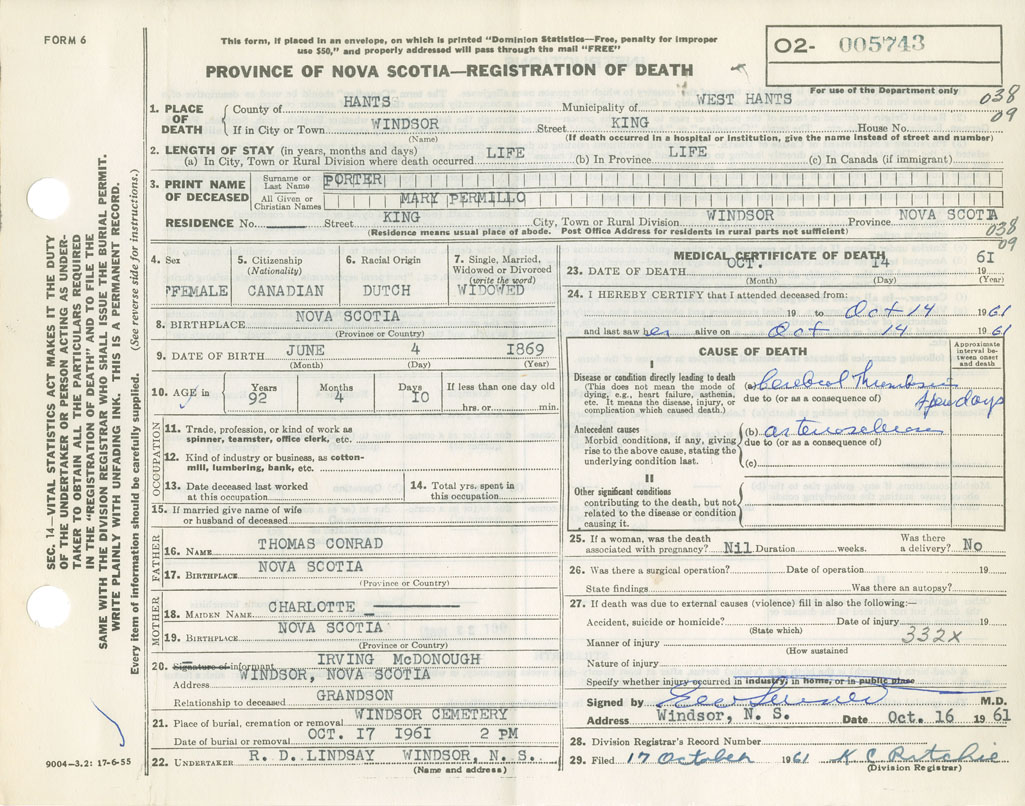 FORM 6
This form, if placed in an envelope, on which is printed "Dominion Statistics—Free, penalty for improper
use $50," and properly addressed will pass through the mail "FREE"
PROVINCE OF NOVA SCOTIA—REGISTRATION OF DEATH
O2- 005743
For use of the Department only
038
09
1. PLACE OF DEATH
County of HANTS Municipality of WEST HANTS
If in City or Town WINDSOR Street KING House No.
(Name) (If death occurred in a hospital or institution, give the name instead of street and number)
2. LENGTH OF STAY (in years, months and days)
(a) In City, Town or Rural Division where death occurred LIFE (b) In Province LIFE (c) In Canada (if immigrant)
3. PRINT NAME OF DECEASED
Surname or Last Name PORTER
All Given or Christian Names MARY PERMILLO
RESIDENCE No. Street KING City, Town or Rural Division WINDSOR Province NOVA SCOTIA
(Residence means usual place of abode. Post Office Address for residents in rural parts not sufficient)
038
09
4. Sex
FEMALE
5. Citizenship
(Nationality)
CANADIAN
6. Racial Origin
DUTCH
7. Single, Married, Widowed or Divorced
(write the word)
WIDOWED
8. BIRTHPLACE NOVA SCOTIA
(Province or Country)
9. DATE OF BIRTH JUNE 4 1869
(Month) (Day) (Year)
10. AGE in
Years Months Days If less than one day old
92 4 10 hrs. or min.
OCCUPATION
11. Trade, profession, or kind of work as
spinner, teamster, office clerk, etc.
12. Kind of industry or business, as cotton-
mill, lumbering, bank, etc.
13. Date deceased last worked
at this occupation
14. Total yrs. spent in
this occupation
15. If married give name of wife
or husband of deceased
FATHER
16. NAME THOMAS CONRAD
17. BIRTHPLACE NOVA SCOTIA
(Province or Country)
MOTHER
18. MAIDEN NAME CHARLOTTE
19. BIRTHPLACE NOVA SCOTIA
(Province or Country)
20. Signature of informant IRVING McDONOUGH
Address WINDSOR, NOVA SCOTIA
Relationship to deceased GRANDSON
21. Place of burial, cremation or removal WINDSOR CEMETERY
Date of burial or removal OCT. 17 1961 2 PM
22. UNDERTAKER R. D. LINDSAY WINDSOR, N. S.
(Name and address)
MEDICAL CERTIFICATE OF DEATH
23. DATE OF DEATH OCT. 14 1961
(Month) (Day) (Year)
24. I HEREBY CERTIFY that I attended deceased from:
19 to Oct 14 1961
and last saw her alive on Oct 14 1961
CAUSE OF DEATH
Approximate interval between onset and death
I
Disease or condition directly leading to death
(This does not mean the mode of
dying, e.g., heart failure, asthenia,
etc. It means the disease, injury, or
complication which caused death.)
(a) Cerebral Thrombosis
due to (or as a consequence of)
few days
Antecedent causes
Morbid conditions, if any, giving
rise to the above cause, stating the
underlying condition last.
(b) arteriosclerosis
due to (or as a consequence of)
(c)
II
Other significant conditions
contributing to the death, but not
related to the disease or condition
causing it.
25. If a woman, was the death
associated with pregnancy? Nil Duration weeks. Was there a delivery? No
26. Was there a surgical operation? Date of operation 19
State findings Was there an autopsy?
27. If death was due to external causes (violence) fill in also the following:—
Accident, suicide or homicide? Date of injury 19
(State which)
Manner of injury 332X
(How sustained
Nature of injury
Specify whether injury occurred in industry, in home, or in public place
Signed by M.D.
Address Windsor, N. S. Date Oct. 16 1961
28. Division Registrar's Record Number
29. Filed 17 October 1961 K C Ritchie
(Division Registrar)
SEC. 14—VITAL STATISTICS ACT MAKES IT THE DUTY
OF THE UNDERTAKER OR PERSON ACTING AS UNDER-
TAKER TO OBTAIN ALL THE PARTICULARS REQUIRED
IN THE "REGISTRATION OF DEATH" AND TO FILE THE
SAME WITH THE DIVISION REGISTRAR WHO SHALL ISSUE THE BURIAL PERMIT.
WRITE PLAINLY WITH UNFADING INK. THIS IS A PERMANENT RECORD.
Every item of information should be carefully supplied. (See reverse side for instructions.)
9004—3.2: 17-6-55